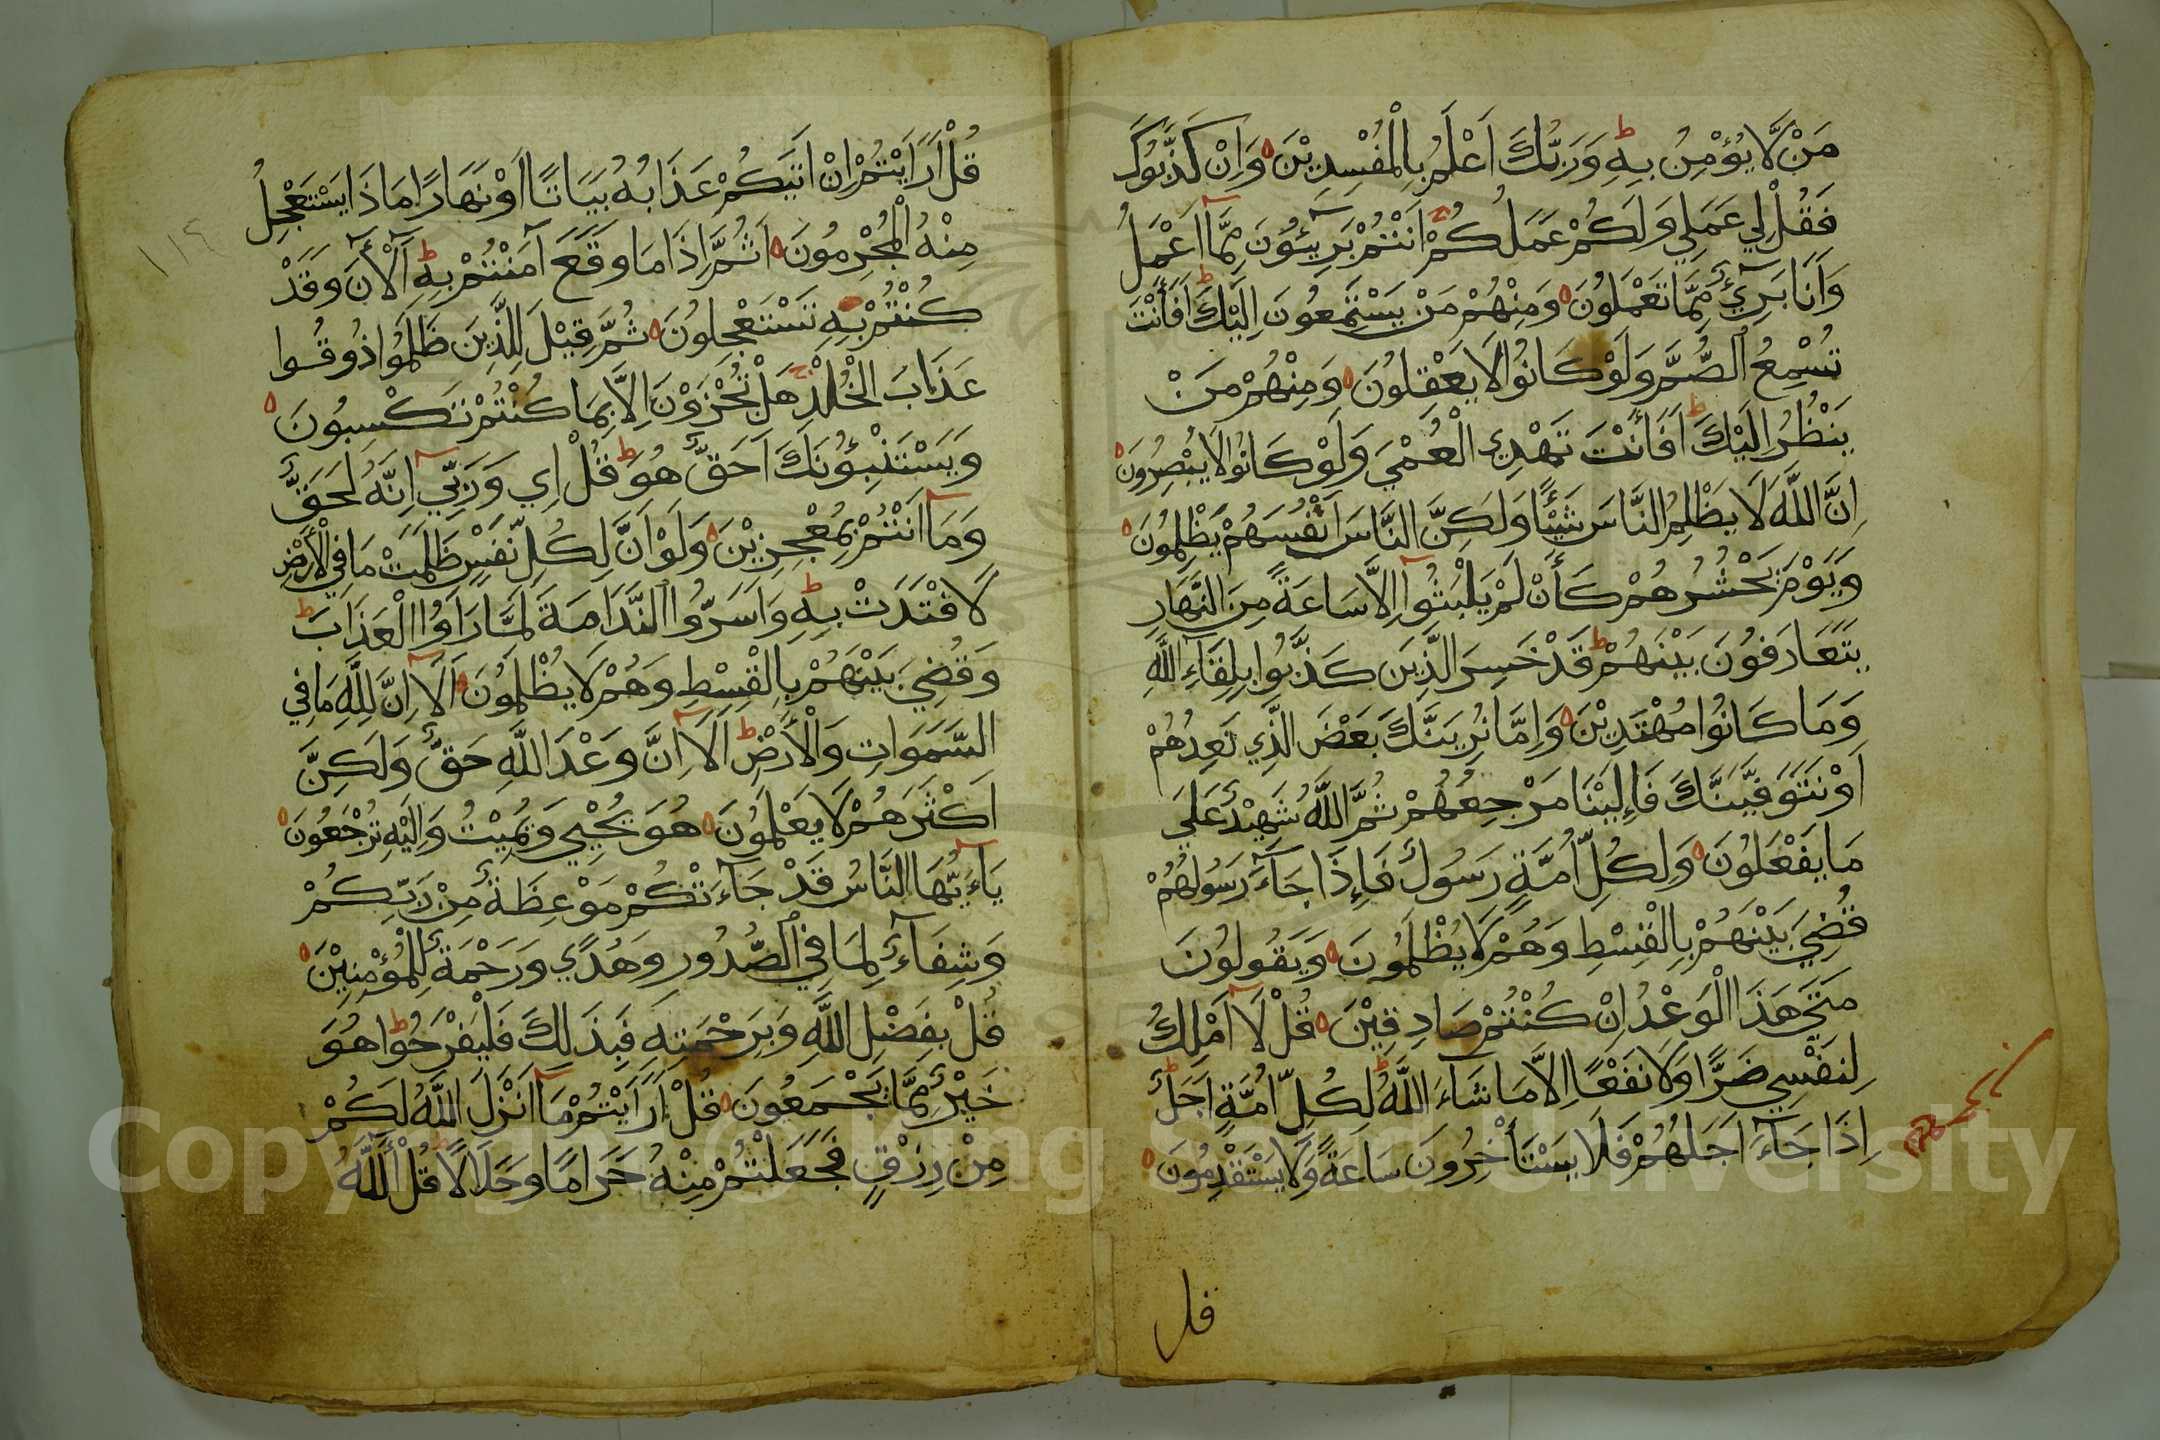 مَنْ لَّا يُؤْمِنُ بِهِ ط وَرَبُّكَ اَعْلَمُ بِالْمُفْسِدِيْنَ ه وَاِنْ كَذَّبُوكَ
فَقُلْ لِي عَمَلِي وَلَكُمْ عَمَلُكُمْ ج اَنْتُمْ بَرِيۤئُوْنَ مِمَّاۤ اَعْمَلُ
وَاَنَا بَرِيۤءٌ مِّمَّا تَعْمَلُونَ ه وَمِنْهُمْ مَنْ يَسْتَمِعُونَ اِلَيْكَ ط اَفَأَنْتَ
تُسْمِعُ الصُّمَّ وَلَوْ كَانُوا لَا يَعْقِلُونَ ه وَمِنْهُمْ مَنْ
يَنْظُرُ اِلَيْكَ ط اَفَأَنْتَ تَهْدِي الْعُمْيَ وَلَوْ كَانُوا لَا يُبْصِرُونَ ه
اِنَّ اللَّهَ لَا يَظْلِمُ النَّاسَ شَيْئًا وَلَكِنَّ النَّاسَ اَنْفُسَهُمْ يَظْلِمُونَ ه
وَيَوْمَ يَحْشُرُهُمْ كَأَنْ لَمْ يَلْبَثُوۤا اِلَّا سَاعَةً مِنَ النَّهَارِ
يَتَعَارَفُونَ بَيْنَهُمْ ط قَدْ خَسِرَ الَّذِينَ كَذَّبُوا بِلِقَاۤءِ اللَّهِ
وَمَا كَانُوا مُهْتَدِيْنَ ه وَاِمَّا نُرِيَنَّكَ بَعْضَ الَّذِي نَعِدُهُمْ
اَوْ نَتَوَفَّيَنَّكَ فَاِلَيْنَا مَرْجِعُهُمْ ثُمَّ اللَّهُ شَهِيْدٌ عَلَى
مَا يَفْعَلُونَ ه وَلِكُلِّ اُمَّةٍ رَسُولٌ فَاِذَا جَاۤءَ رَسُولُهُمْ
قُضِيَ بَيْنَهُمْ بِالْقِسْطِ وَهُمْ لَا يُظْلَمُونَ ه وَيَقُولُونَ
مَتَى هَذَا الْوَعْدُ اِنْ كُنْتُمْ صَادِقِيْنَ ه قُلْ لَاۤ اَمْلِكُ
لِنَفْسِي ضَرًّا وَلَا نَفْعًا اِلَّا مَا شَاۤءَ اللَّهُ ط لِكُلِّ اُمَّةٍ اَجَلٌ ط
اِذَا جَاۤءَ اَجَلُهُمْ فَلَا يَسْتَأْخِرُونَ سَاعَةً وَلَا يَسْتَقْدِمُونَ ه
قل
١١٤
قُلْ اَرَاَيْتُمْ اِنْ اَتَيكُمْ عَذَابُهُ بَيَاتًا اَوْ نَهَارًا مَاذَا يَسْتَعْجِلُ
مِنْهُ الْمُجْرِمُونَ ه اَثُمَّ اِذَا مَا وَقَعَ آمَنْتُمْ بِهِ ط آلْأٰنَ وَقَدْ
كُنْتُمْ بِهِ تَسْتَعْجِلُونَ ه ثُمَّ قِيْلَ لِلَّذِينَ ظَلَمُوا ذُوقُوا
عَذَابَ الْخُلْدِ ج هَلْ تُجْزَوْنَ اِلَّا بِمَا كُنْتُمْ تَكْسِبُونَ ه
وَيَسْتَنْبِؤُنَكَ اَحَقٌّ هُوَ ط قُلْ اِي وَرَبِّيۤ اِنَّهُ لَحَقٌّ
وَمَاۤ اَنْتُمْ بِمُعْجِزِيْنَ ه وَلَوْ اَنَّ لِكُلِّ نَفْسٍ ظَلَمَتْ مَا فِي الْأَرْضِ
لَافْتَدَتْ بِهِ ط وَاَسَرُّوا النَّدَامَةَ لَمَّا رَاَوُا الْعَذَابَ ط
وَقُضِيَ بَيْنَهُمْ بِالْقِسْطِ وَهُمْ لَا يُظْلَمُونَ ه اَلَاۤ اِنَّ لِلَّهِ مَا فِي
السَّمَوَاتِ وَالْأَرْضِ ط اَلَاۤ اِنَّ وَعْدَ اللَّهِ حَقٌّ وَلَكِنَّ
اَكْثَرَهُمْ لَا يَعْلَمُونَ ه هُوَ يُحْيِي وَيُمِيْتُ وَاِلَيْهِ تُرْجَعُونَ ه
يَاۤءَيُّهَا النَّاسُ قَدْ جَاۤءَتْكُمْ مَوْعِظَةٌ مِنْ رَبِّكُمْ
وَشِفَاۤءٌ لِمَا فِي الصُّدُورِ وَهُدًي وَرَحْمَةٌ لِلْمُؤْمِنِيْنَ ه
قُلْ بِفَضْلِ اللَّهِ وَبِرَحْمَتِهِ فَبِذَلِكَ فَلْيَفْرَحُوا ط هُوَ
خَيْرٌ مِمَّا يَجْمَعُونَ ه قُلْ اَرَاَيْتُمْ مَاۤ اَنْزَلَ اللَّهُ لَكُمْ
مِنْ رِزْقٍ فَجَعَلْتُمْ مِنْهُ حَرَامًا وَحَلَالًا ط قُلْ آللَّهُ
Copyright © King Saud University